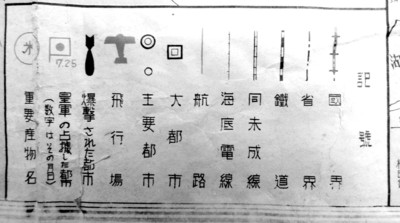 記號
國界
省界
鐵道
同未成線
海底電線
航路
大都市
主要都市
飛行場
爆撃された都市
皇軍の占據した都市
(数字はその月日)
7.25
重要産物名
米